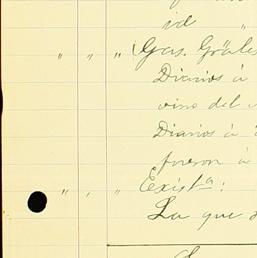 id "
" " " Gas. Gráles
Diarios á
vino del
Diarios á
fueron á
" " " Exist.ª:
La que